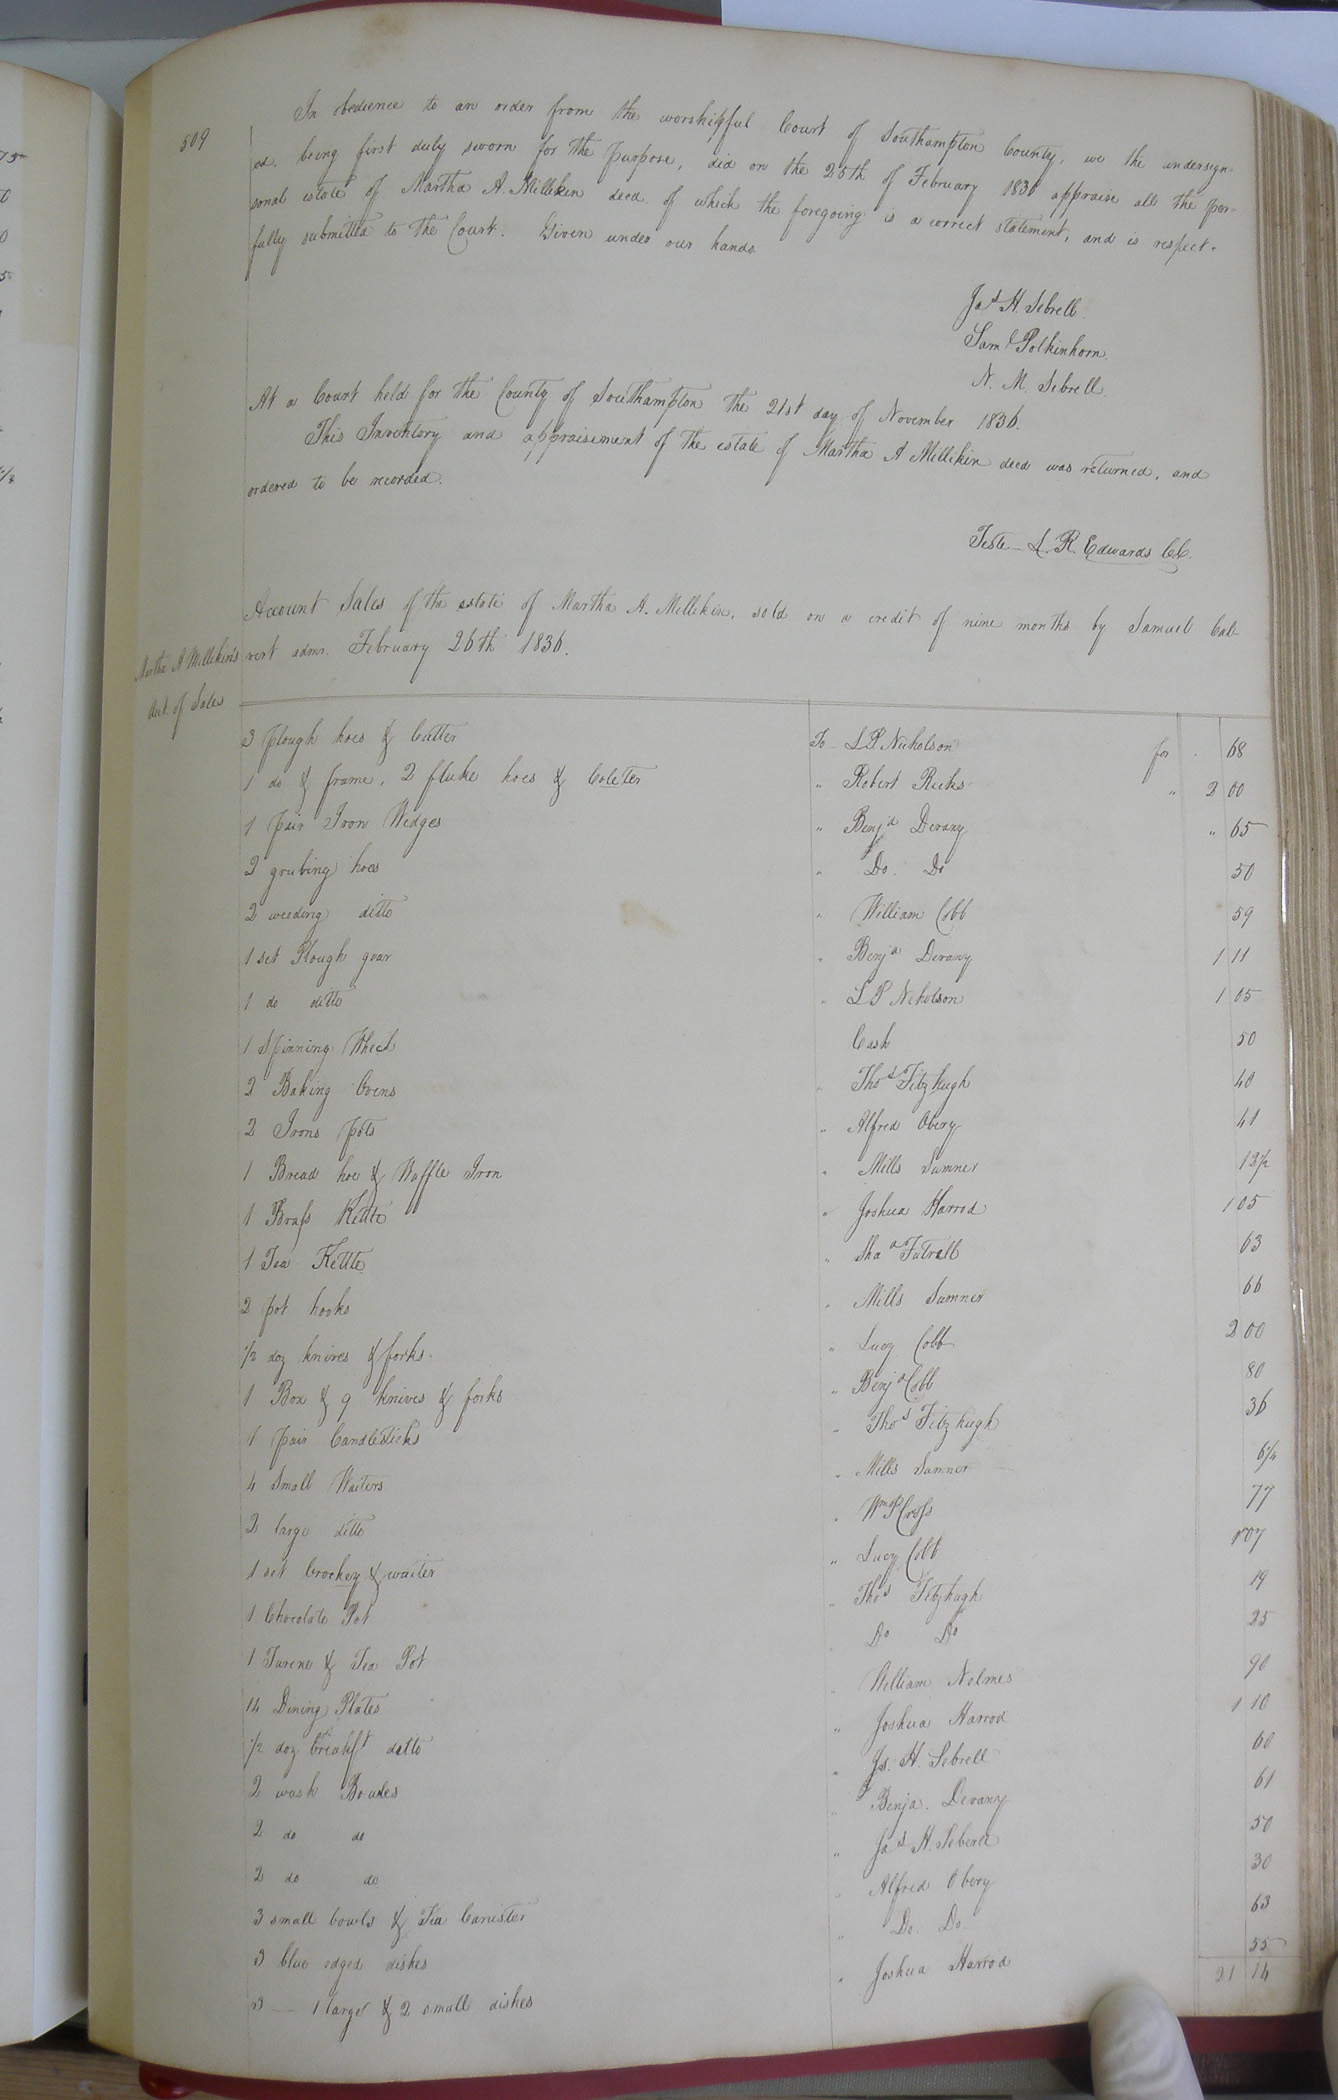 509
In obedience to an order from the worshipful Court of Southampton County, we the undersign-
ed. being first duly sworn for the purpose, did on the 25th of February 1836 appraise all the per-
sonal estate of Martha A. Millikin decd. of which the foregoing is a correct statement, and is respect-
fully submitted to the Court. Given under our hands.
Jas H. Sebrell
Saml Polkinhorn
N. M. Sebrell
At a Court held for the County of Southampton the 21st day of November 1836.
This Inventory and appraisement of the estate of Martha A Millikin decd was returned, and
ordered to be recorded.
Teste L. R. Edwards CC.
Account Sales of the estate of Martha A. Millikin, sold on a credit of nine months by Samuel Cal-
vert admr. February 26th 1836.
Martha A Millikin's
Act. of Sales
3 plough hoes & Cutter To L P Nicholson for 68
1 do & frame, 2 fluke hoes & Colter " Robert Ricks " 2 00
1 pair Iron Wedges " Benja Devany " 65
2 grubing hoes " Do. Do 50
2 weeding ditto " William Cobb 59
1 set Plough gear " Benja Devany 1 11
1 do ditto " L P Nicholson 1 05
1 Spinning Wheel Cash 50
2 Baking Ovens " Thos Fitzhugh 40
2 Irons pots " Alfred Obery 41
1 Bread hoe & Waffle Iron " Mills Sumner 12½
1 Brass Kettle " Joshua Harrod 1 05
1 Tea Kettle " Sha a Futrell 63
2 pot hooks " Mills Sumner 66
½ doz knives & forks " Lucy Cobb 2 00
1 Box & 9 knives & forks " Benja Cobb 80
1 pair Candlesticks " Thos Fitzhugh 36
4 Small Waiters " Mills Sumner 6¼
2 large ditto " Wm P Cross 77
1 set Crockey & waiter " Lucy Cobb 1 07
1 Chocolate Pot " Thos Fitzhugh 19
1 Turene & Tea Pot Do Do 25
14 Dining Plates William Nelmes 90
½ doz breakft ditto " Joshua Harrod 1 10
2 wash Boules " Js. H. Sebrell 60
2 do do " Benja. Devany 61
2 do do " Jas H. Sebrell 50
3 small bowls & Tea Canister " Alfred Obery 30
3 blue edged dishes " Do. Do 63
3 — 1 large & 2 small dishes " Joshua Harrod 55
21 14